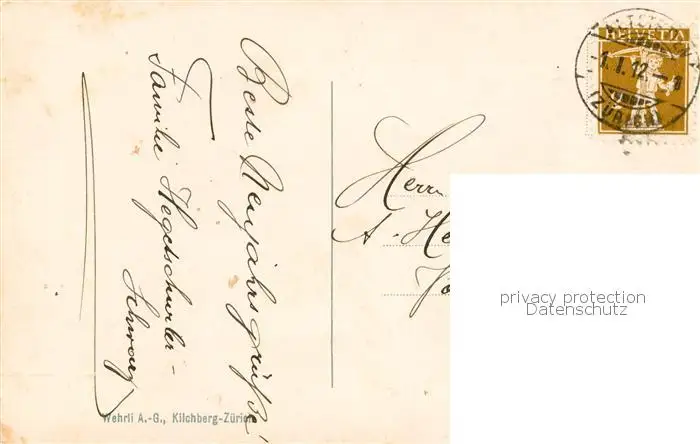 Beste Neujahrsgrüße!
Familie Hegetschweiler-
Schwarz
Herrn
A. He
HELVETIA
1.I.12.
(ZÜRICH)
Wehrli A.-G., Kilchberg-Zürich
privacy protection
Datenschutz